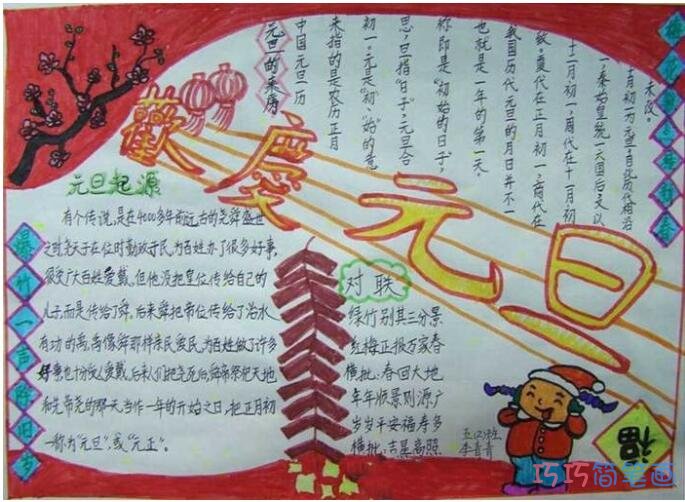 歡慶元旦
元旦的来历
中国元旦历
来指的是农历正月
初一。"元"是"初"、"始"的意
思,"旦"指"日子",元旦合
称即是"初始的日子",
也就是一年的第一天。
我国历代元旦的月日并不一
致。夏代在正月初一,商代在
十二月初一,周代在十一月初
一,秦始皇统一六国后,又以
十月初一为元旦,自此历代相沿
未改。
元旦起源
有个传说,是在4000多年前远古的尧舜盛世
之时,尧天子在位时勤政于民,为百姓办了很多好事,
很受广大百姓爱戴,但他没把皇位传给自己的
儿子,而是传给了舜,后来舜把帝位传给了治水
有功的禹,禹像舜那样亲民爱民,为百姓做了许多
好事也十分受人爱戴,后来人们把尧死后,舜帝祭祀天地
和先帝尧的那天,当作一年的开始之日,把正月初
一称为"元旦",或"元正"。
爆竹一声除旧岁
对联
绿竹别其三分景
红梅正报万家春
横批:春回大地
年年顺景则源广
岁岁平安福寿多
横批:吉星高照
五(2)班
福
巧巧简笔画